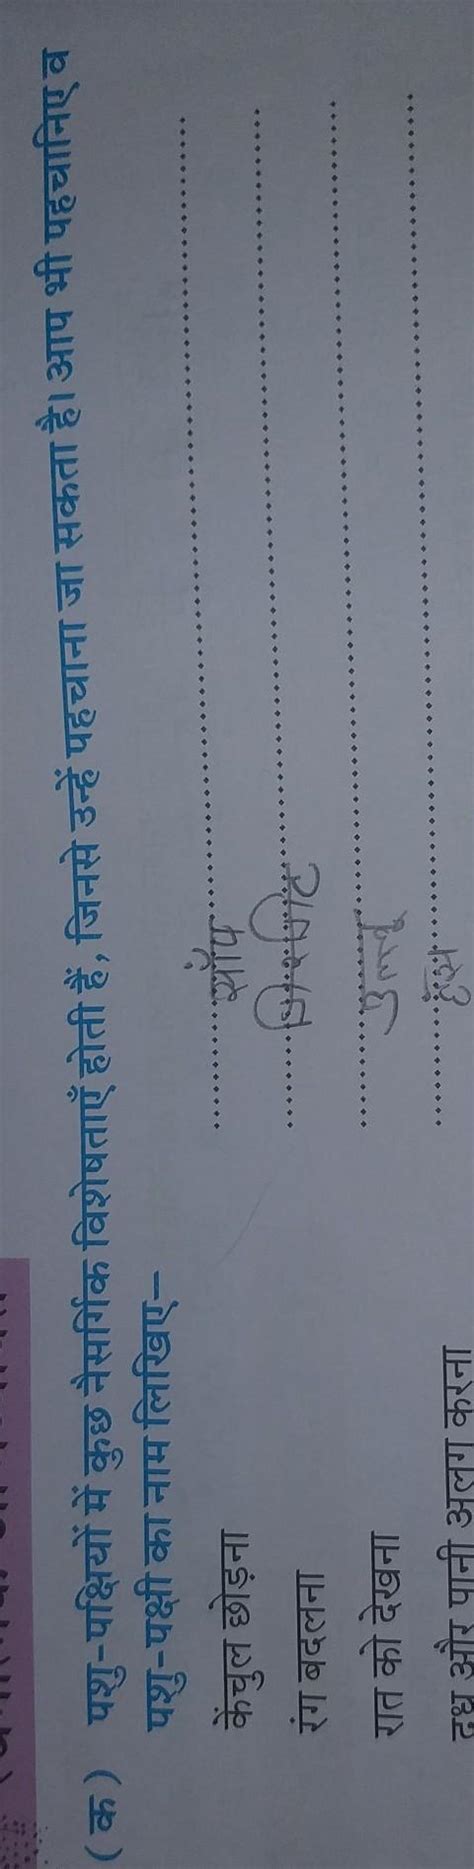 (क) पशु-पक्षियों में कुछ नैसर्गिक विशेषताएँ होती हैं, जिनसे उन्हें पहचाना जा सकता है। आप भी पहचानिए व
पशु-पक्षी का नाम लिखिए-
केंचुल छोड़ना साँप
रंग बदलना गिरगिट
रात को देखना उल्लू
दूध और पानी अलग करना हंस